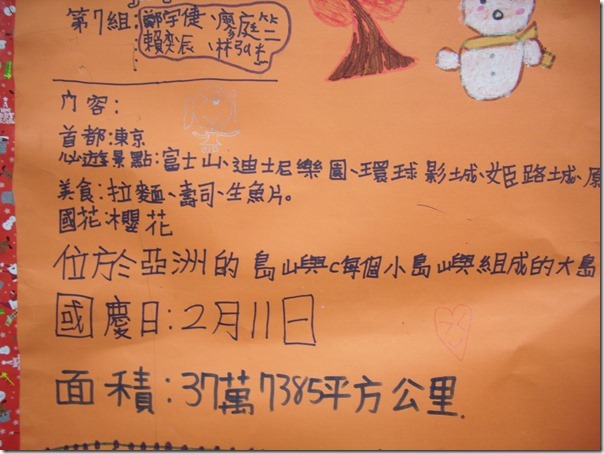 第7組:鄭宇倢、廖庭竺
賴奕辰、林弘
內容:
首都:東京
必遊景點:富士山、迪士尼樂園、環球影城、姬路城、原
美食:拉麵、壽司、生魚片。
國花:櫻花
位於亞洲的島嶼c每個小島嶼組成的大島
國慶日:2月11日
面積:37萬7385平方公里.